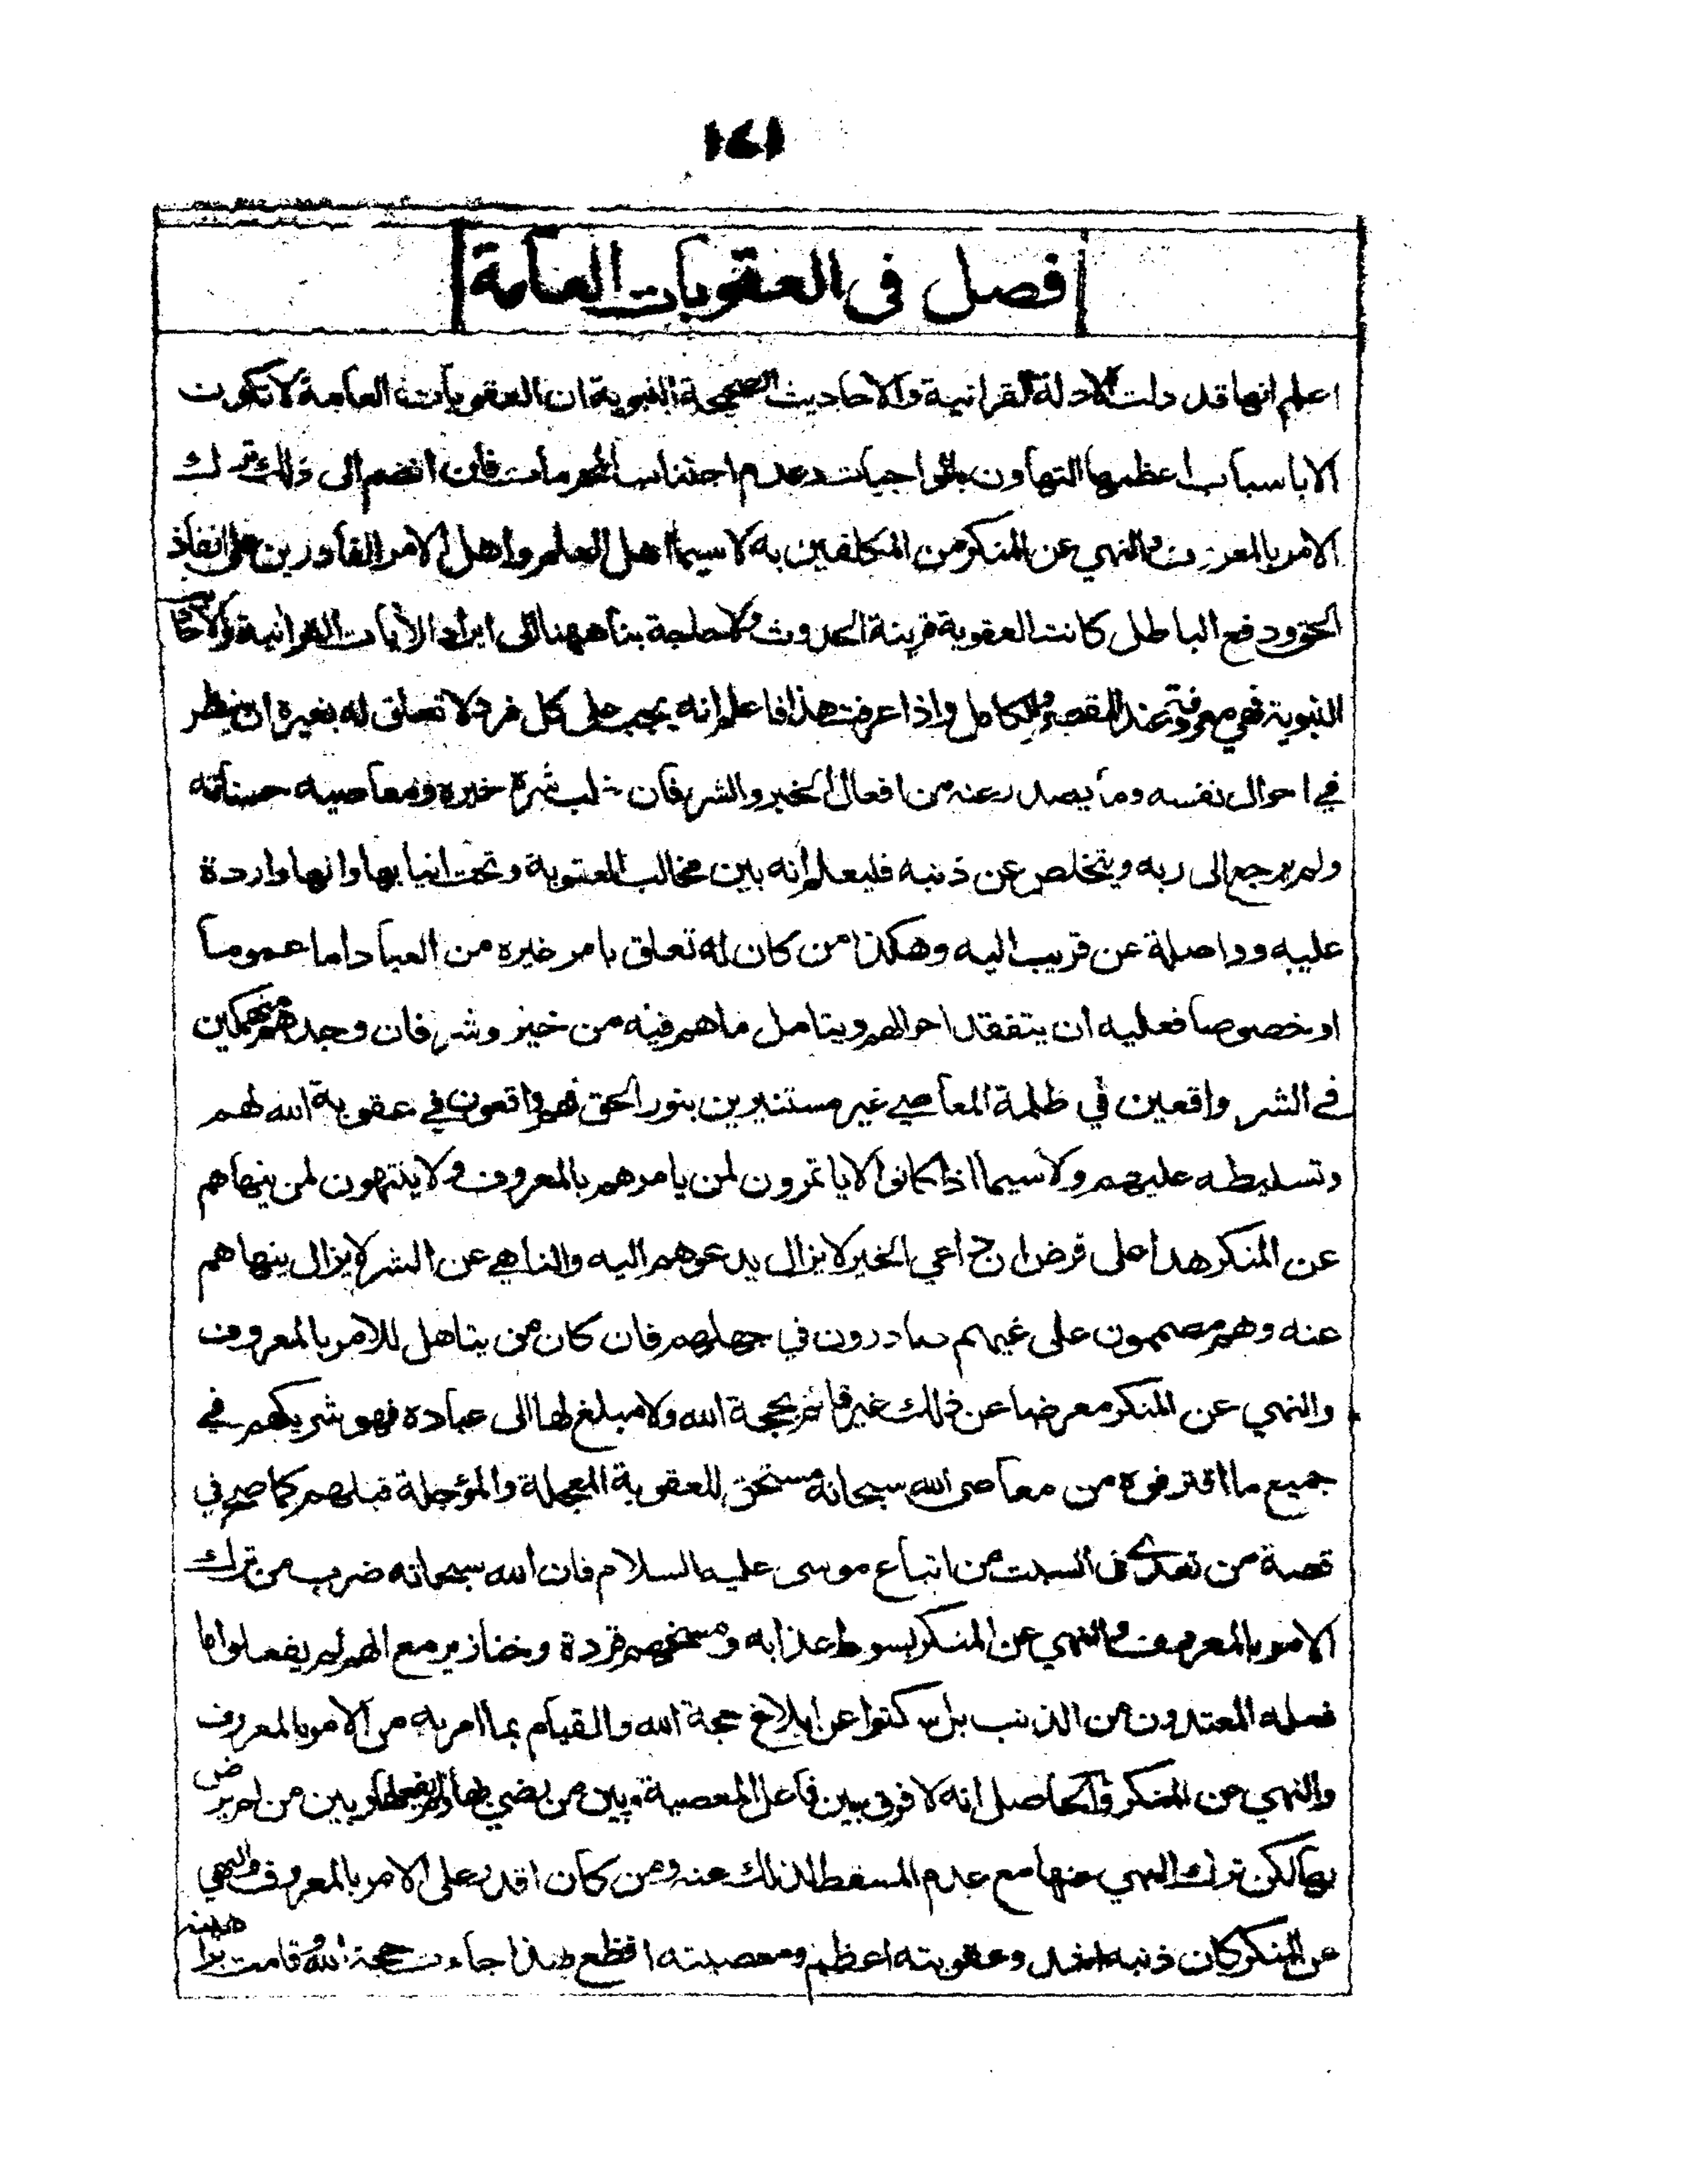 ١٤١
فصل في العقوبات العامة
اعلم انها قد دلت الادلة القرانية والاحاديث الصحيحة النبوية ان العقوبات العامة لا تكون
الا باسباب اعظمها التهاون بالواجبات وعدم اجتناب المحرمات فان انضم الى ذلك ترك
الامر بالمعروف والنهي عن المنكر من المكلفين به لا سيما اهل العلم واهل الامر القادرين على انفاذ
الحق ودفع الباطل كانت العقوبة قريبة الحدوث ولا حاجة بنا ههنا الى ايراد الأيات القرانية والاحا
النبوية فهي معروفة عند المقصر والكامل واذا عرفت هذا فاعلم انه يجب على كل فرد لا تعلق له بغيره ان ينظر
في احوال نفسه وما يصدر عنه من افعال الخير والشر فان غلب شره خيره ومعاصيه حسناته
ولم يرجع الى ربه ويتخلص عن ذنبه فليعلم انه بين مخالب العقوبة وتحت انيابها وانها واردة
عليه وواصلة عن قريب اليه وهكذا من كان له تعلق بامر غيره من العباد اما عموما
او خصوصا فعليه ان يتفقد احوالهم ويتامل ما هم فيه من خير وشر فان وجدهم منهمكين
في الشر واقعين في ظلمة المعاصي غير مستنيرين بنور الحق فهم واقعون في عقوبة الله لهم
وتسليطه عليهم ولا سيما اذا كانوا لا ياتمرون لمن يامرهم بالمعروف ولا ينتهون لمن ينهاهم
عن المنكر هذا على فرض ان داعي الخير لا يزال يدعوهم اليه والناهي عن الشر لا يزال ينهاهم
عنه وهم مصممون على غيهم سادرون في جهلهم فان كان من يتاهل للامر بالمعروف
والنهي عن المنكر معرضا عن ذلك غير قائم بحجة الله ولا مبلغ لها الى عباده فهو شريكهم في
جميع ما اقترفوه من معاصي الله سبحانه مستحق للعقوبة المعجلة والمؤجلة قبلهم كما صح في
قصة من تعدى في السبت من اتباع موسى عليه السلام فان الله سبحانه ضرب من ترك
الامر بالمعروف والنهي عن المنكر بسوط عذابه ومسخهم قردة وخنازير مع انهم لم يفعلوا ما
فعله المعتدون من الذنب بل سكتوا عن ابلاغ حجة الله والقيام بما امر به من الامر بالمعروف
والنهي عن المنكر والحاصل انه لا فرق بين فاعل المعصية وبين من رضي بها ولم يفعلها وبين من لم يرض
بها لكن ترك النهي عنها مع عدم المسقط لذلك عنه ومن كان اقدر على الامر بالمعروف والنهي
عن المنكر كان ذنبه اشد وعقوبته اعظم ومعصيته افظع بهذا جاءت حجة الله وقامت براهينه